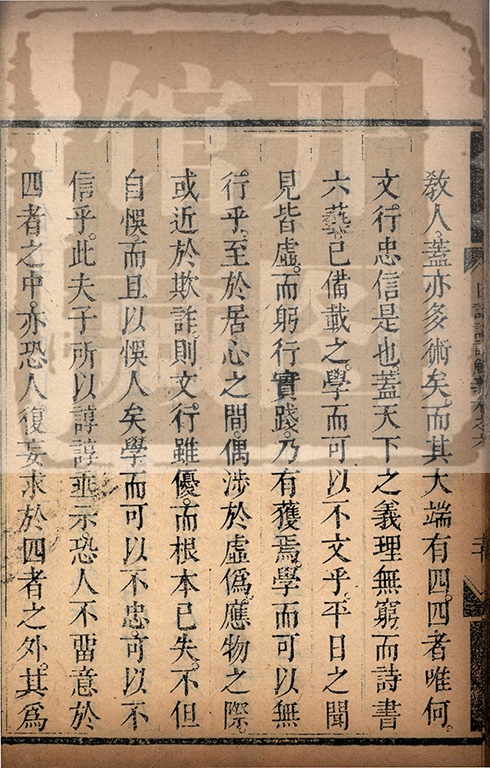 教人。蓋亦多術矣。而其大端有四。四者唯何。
文。行。忠。信是也。蓋天下之義理無窮。而詩書
六藝。已備載之。學而可以不文乎。平日之聞
見皆虛。而躬行實踐。乃有獲焉。學而可以無
行乎。至於居心之間。偶涉於虛偽。應物之際。
或近於欺詐。則文。行雖優。而根本已失。不但
自悞。而且以悞人矣。學而可以不忠。可以不
信乎。此夫子所以諄諄垂示。恐人不畱意於
四者之中。亦恐人復妄求於四者之外。其為